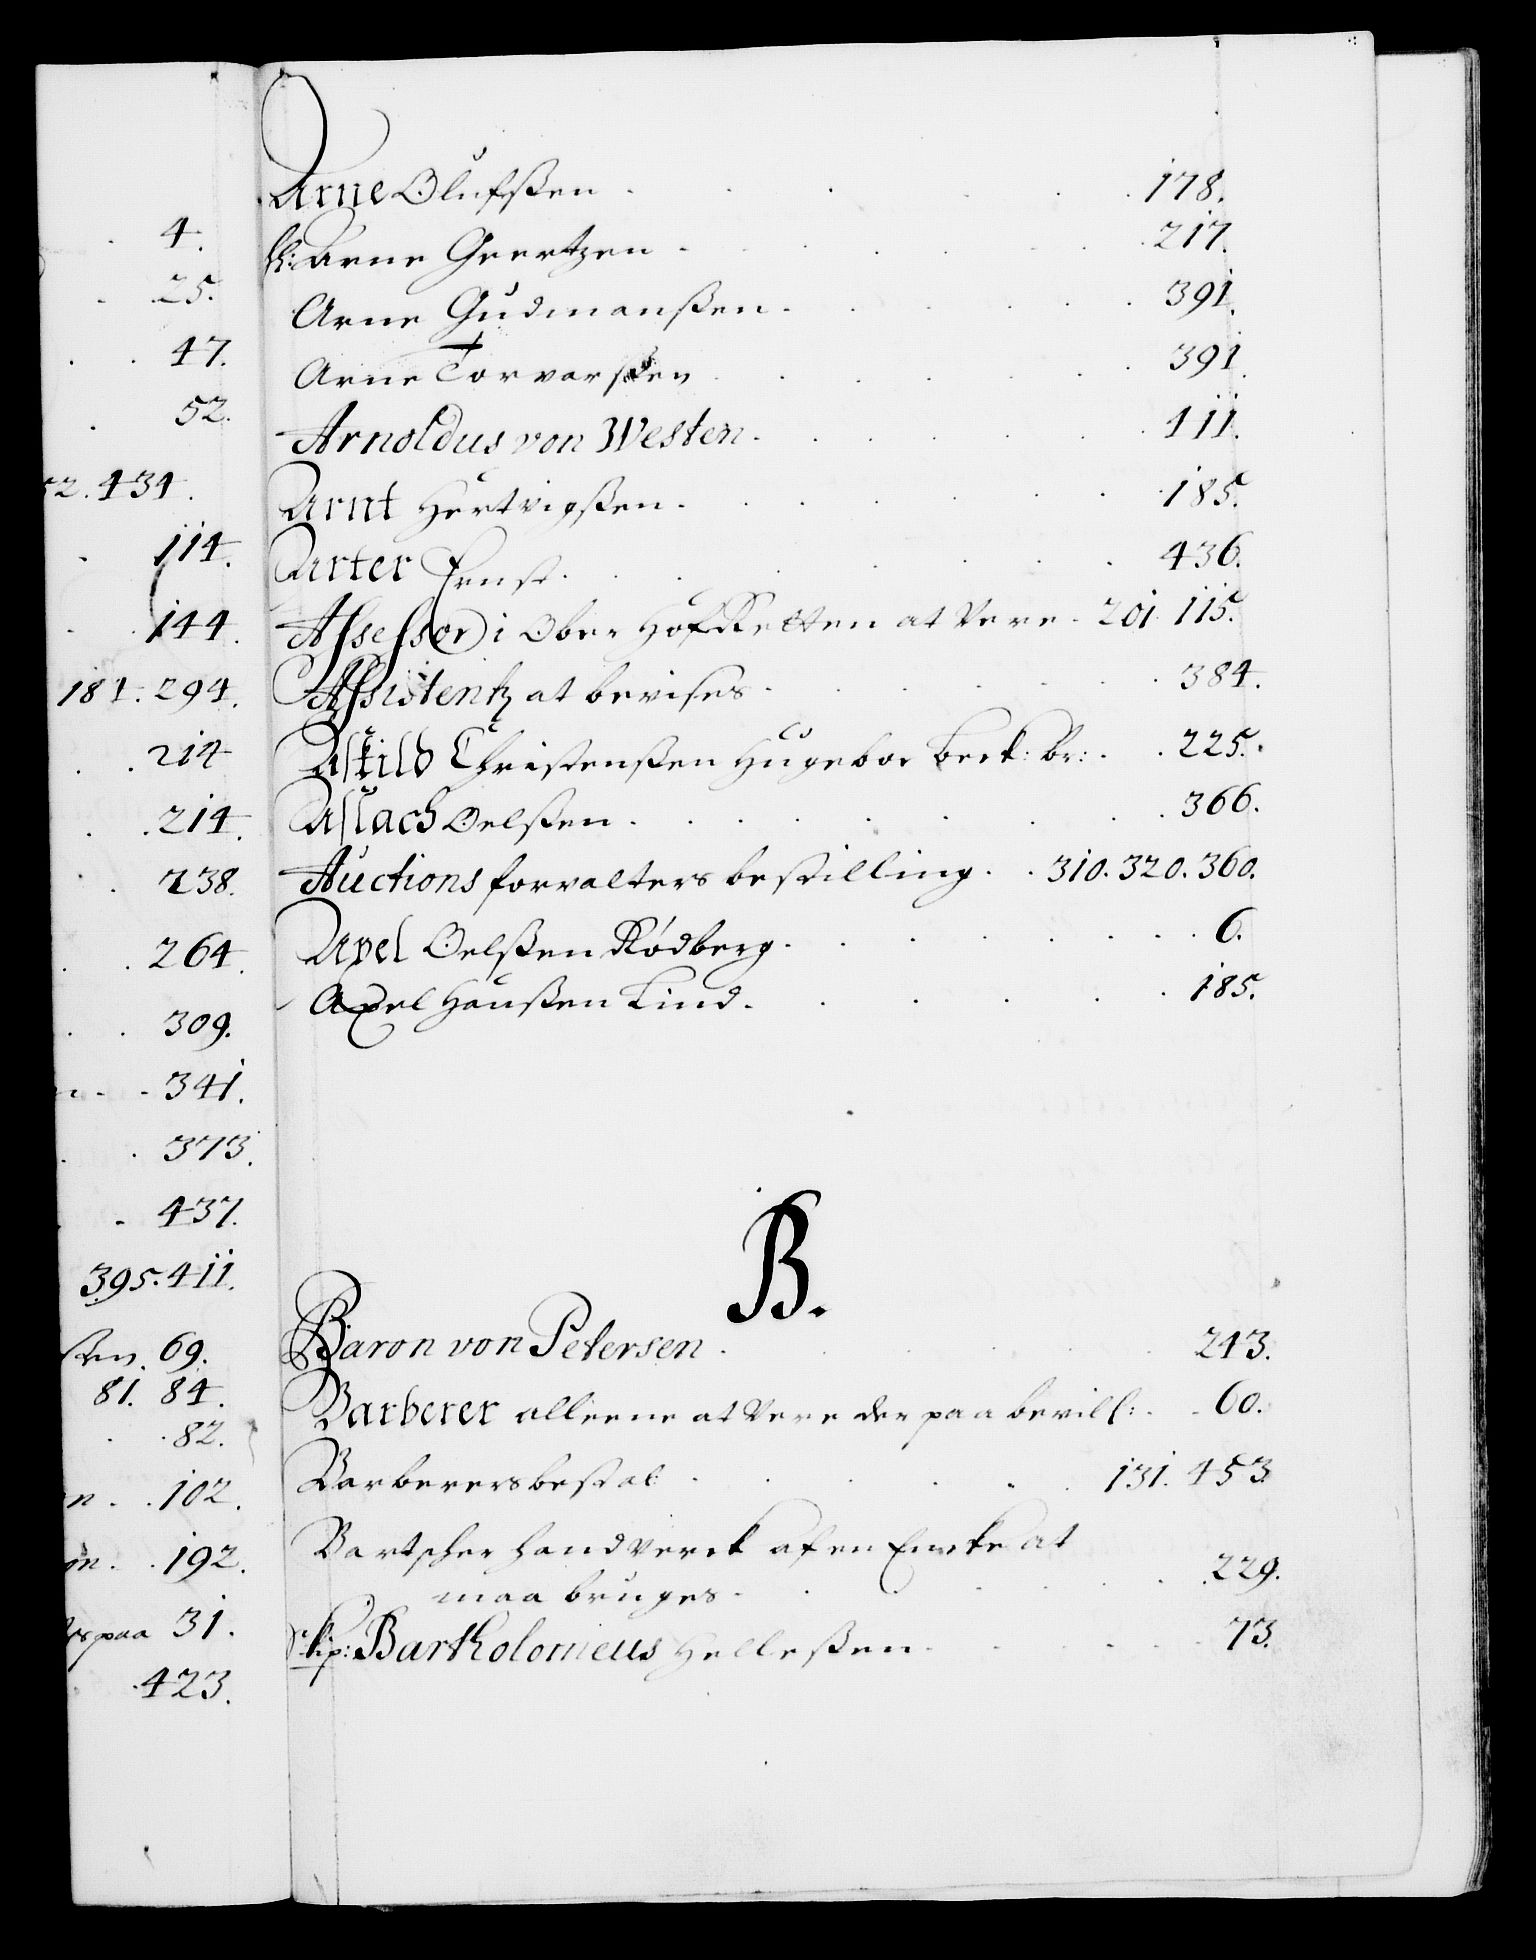 4.
25.
47.
52.
52. 434.
114.
144.
181. 294.
214
214.
238.
264.
309.
341.
373.
437.
395. 411.
69.
81. 84.
82.
102.
192.
paa 31.
423.
Arne Olufsßen . 178.
Arne Geertzen . 217.
Arne Gudmanßen . 391.
Arne Torvarsßen . 391.
Arnoldus von Westen . 111.
Arnt Hertvigßen . 185.
Arter Ernst . 436.
Assessor i Ober Hof Retten at Vere . 201. 115.
Assistentz at bevises . 384.
Askild Christensßen Hugeboe Berk: br: . 225.
Aslach Oelßen . 366.
Auctions forvalters bestilling . 310. 320. 360.
Axel Oelßen Rødberg . 6.
Axel Hanßen Lind . 185.
B.
Baron von Petersen . 243.
Barberer alleene at Vere der paa bevill: . 60.
Barberers bestal: 131. 453
Bartscher handverck af en Encke at
maa bruges . 229.
Skip: Bartholomeus Helleßen . 73.